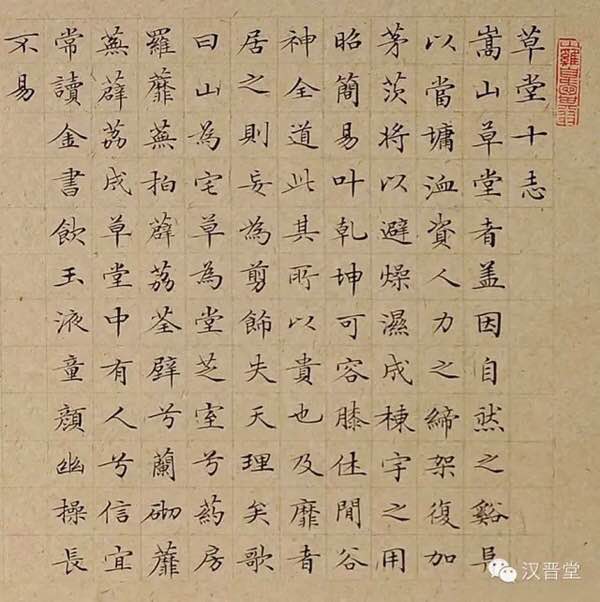 草堂十志
嵩山草堂者盖因自然之谿阜
以當墉洫資人力之締架復加
茅茨將以避燥濕成棟宇之用
昭簡易叶乾坤可容膝休閒谷
神全道此其所以貴也及靡者
居之則妄為剪飾失天理矣歌
曰山為宅草為堂芝室兮葯房
羅蘼蕪拍薜荔荃壁兮蘭砌蘼
蕪薜荔成草堂中有人兮信宜
常讀金書飲玉液童顏幽操長
不易
汉晋堂